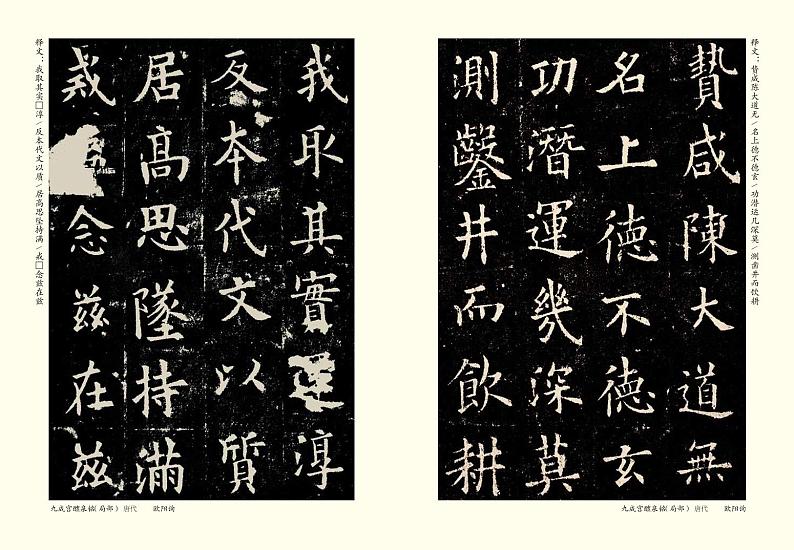 释文：昔成陈大道无/名上德不德玄/功潜运几深莫/测凿井而饮耕
贄咸陳大道無
名上德不德玄
功潛運幾深莫
測鑿井而飲耕
九成宫醴泉铭(局部) 唐代 欧阳询
我取其實淳
反本代文以質
居高思墜持滿
戒念兹在兹
释文：我取其实□淳/反本代文以质/居高思坠持满/戒□念兹在兹
九成宫醴泉铭(局部) 唐代 欧阳询